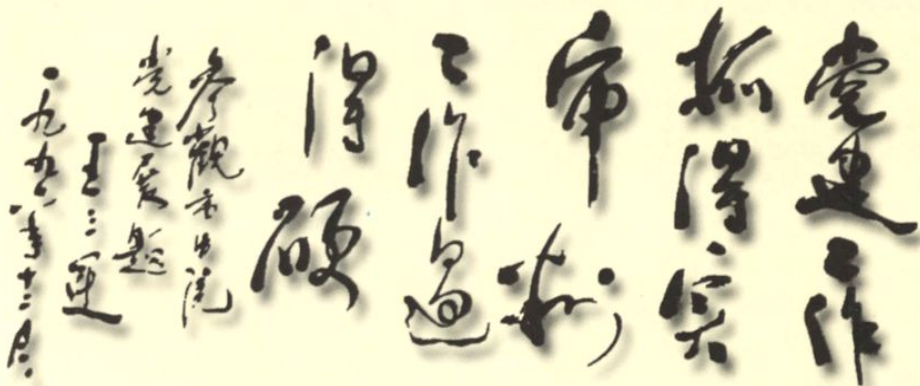 党建工作
抓得实
审判
工作过
得硬
参觀市中院
党建展题
王三运
一九九八年十二月